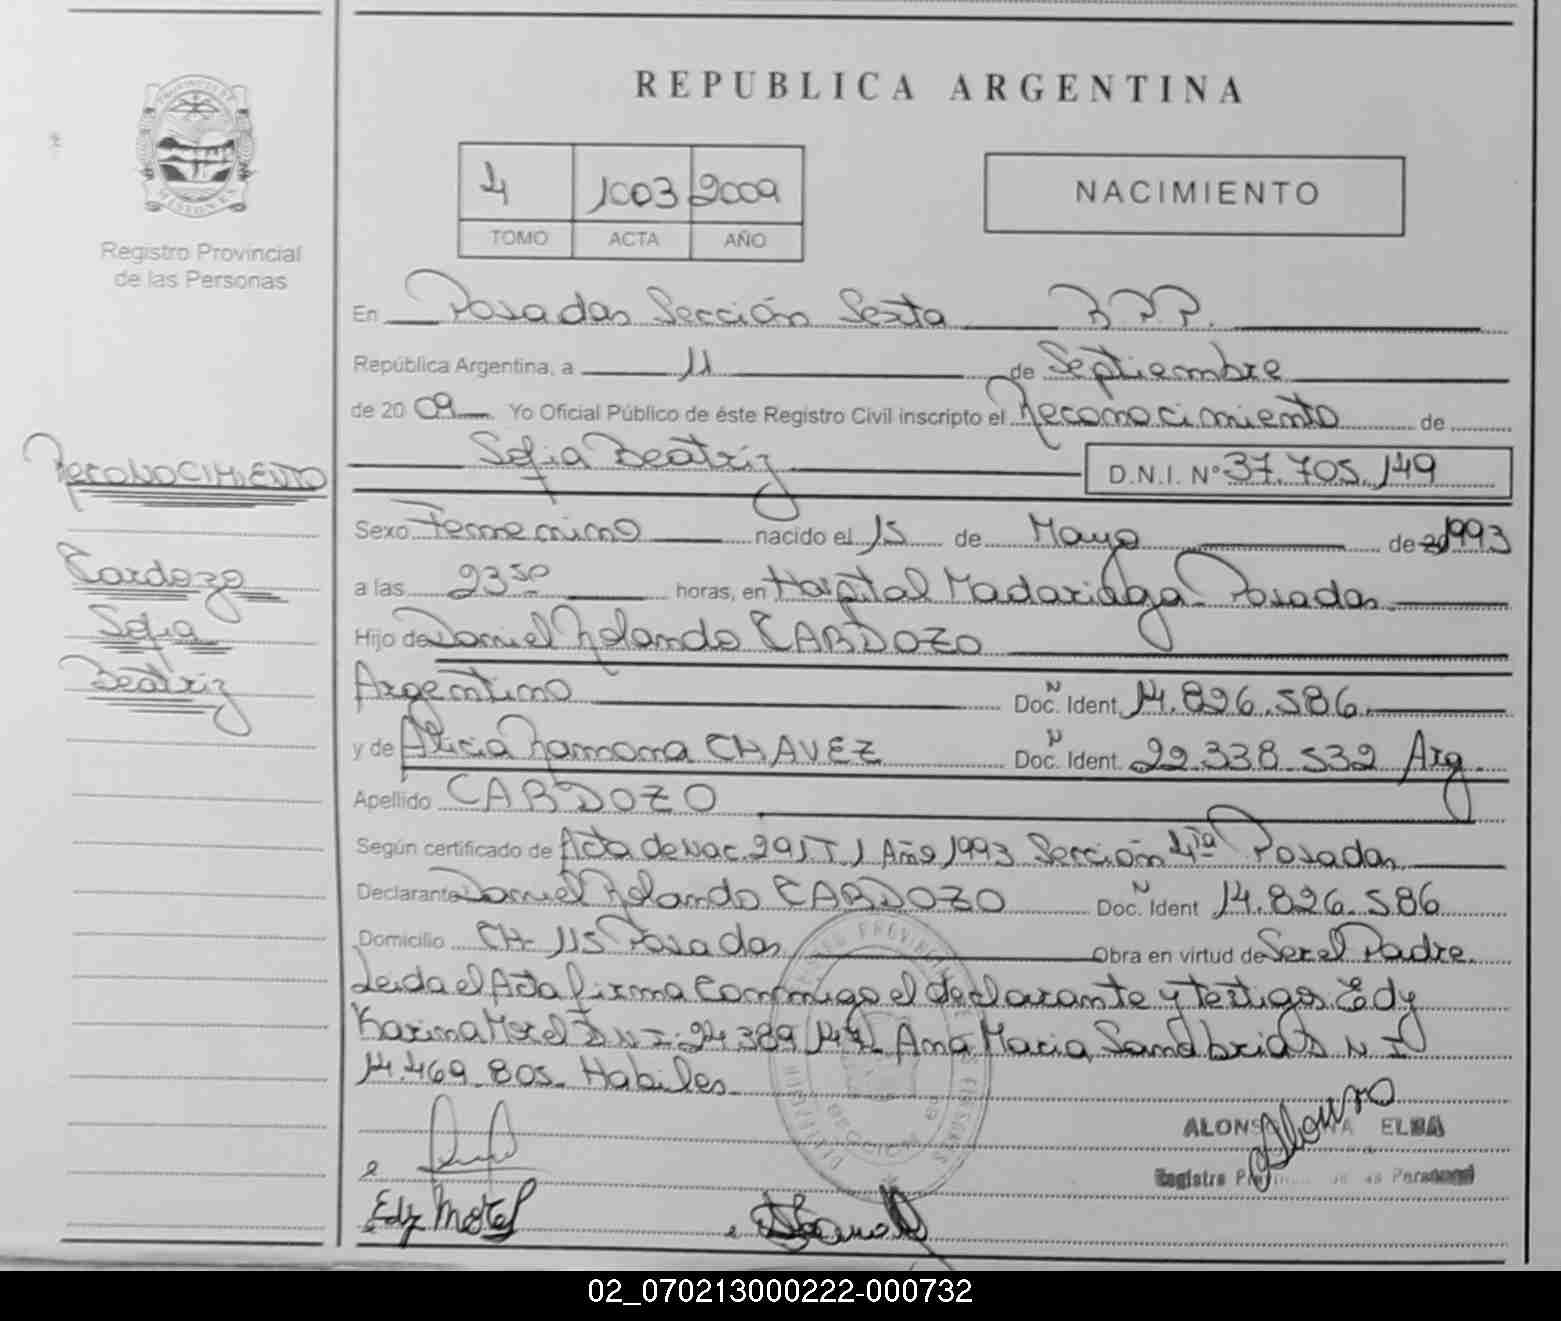 REPUBLICA ARGENTINA
4 1003 2009
TOMO ACTA AÑO
NACIMIENTO
Registro Provincial
de las Personas
En Posadas Sección Sexta R.P.P.
República Argentina, a 11 de Septiembre
de 20 09 Yo Oficial Público de éste Registro Civil inscripto el Reconocimiento de
Sofia Beatriz D.N.I. Nº 37.705.149
Sexo Femenino nacido el 15 de Mayo de 1993
a las 23 50 horas, en Hospital Madariaga Posadas
Hijo de Daniel Rolando CARDOZO
Argentino Doc. N Ident. 14.826.586
y de Alicia Ramona CHAVEZ Doc. N Ident. 22.338.532 Arg
Apellido CARDOZO
Según certificado de Acta de Nac. 291 T 1 Año 1993 Sección 4ta Posadas
Declarante Daniel Rolando CARDOZO Doc. N Ident 14.826.586
Domicilio CH- 115 Posadas Obra en virtud de Ser el Padre.
Leida el Acta firma Conmigo el declarante y testigos Edy
Karina Morel D N I. 24.389 Ana Maria D N I
14.469.805. Habiles
RECONOCIMIENTO
Cardozo
Sofia
Beatriz
ELBA
Registro
Edy Morel
02_070213000222-000732